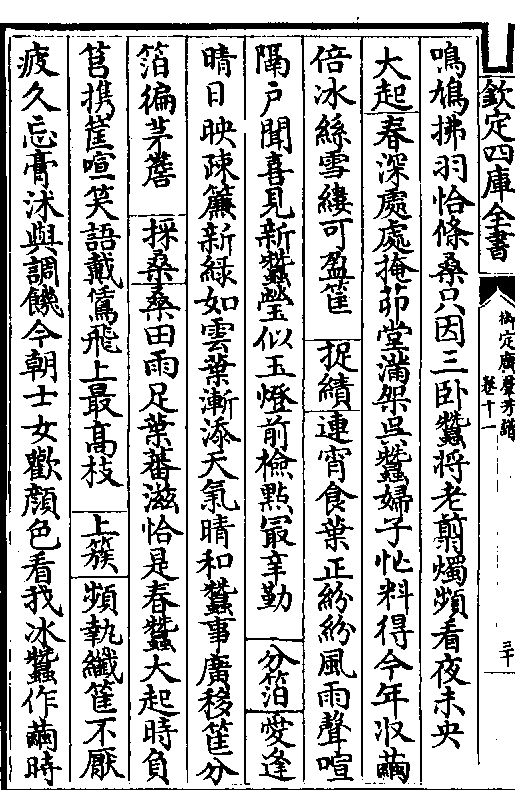 欽定四庫全書
御定廣羣芳譜
卷十一
三十
鳴鳩拂羽恰條桑只因三卧蠶將老翦燭頻看夜未央
大起春深處處掩茆堂滿架吳蠶婦子忙料得今年收繭
倍冰絲雪縷可盈筐 捉績連宵食葉正紛紛風雨聲喧
隔戶聞喜見新蠶瑩似玉燈前檢點最辛勤 分箔愛逢
晴日映疎簾新綠如雲葉漸添天氣晴和蠶事廣移筐分
箔徧茅簷 採桑桑田雨足葉蕃滋恰是春蠶大起時負
筥携筐喧笑語戴鵀飛上最高枝 上簇頻執纖筐不厭
疲久忘膏沐與調饑今朝士女歡顔色看我冰蠶作繭時